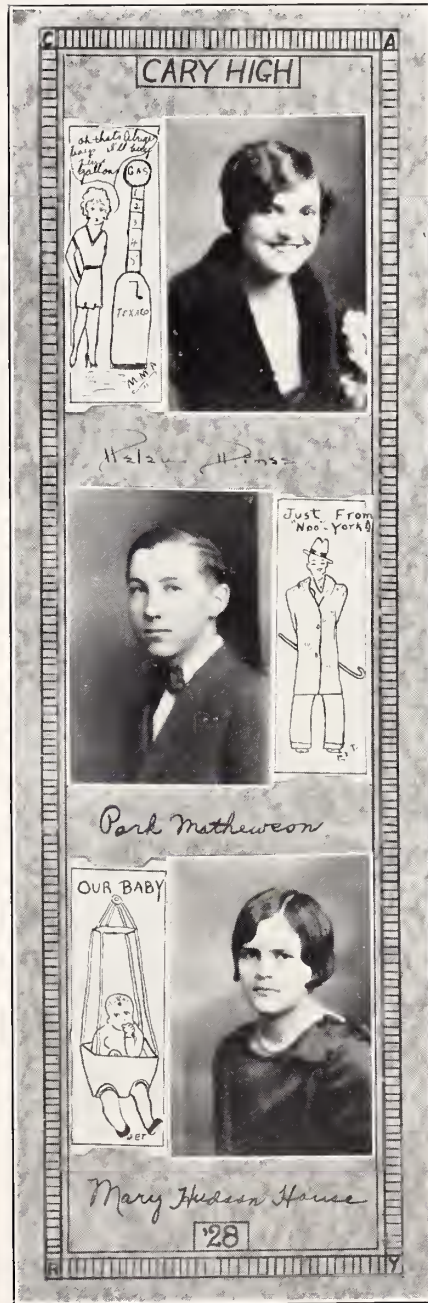 C A
CARY HIGH
oh thats a large
I'll buy
Gallon
GAS
2
3
4
5
TEXACO
M.M.A
Helen
Just From
"Noo"-York
Park Mathewson
OUR BABY
JET
Mary Hudson House
'28
R Y